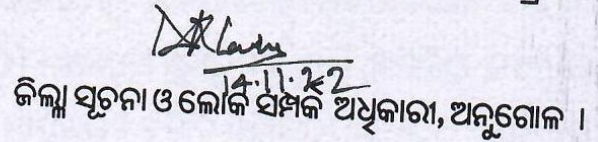 14.11.22
ଜିଲ୍ଲା ସୂଚନା ଓ ଲୋକ ସମ୍ପର୍କ ଅଧିକାରୀ, ଅନୁଗୋଳ ।